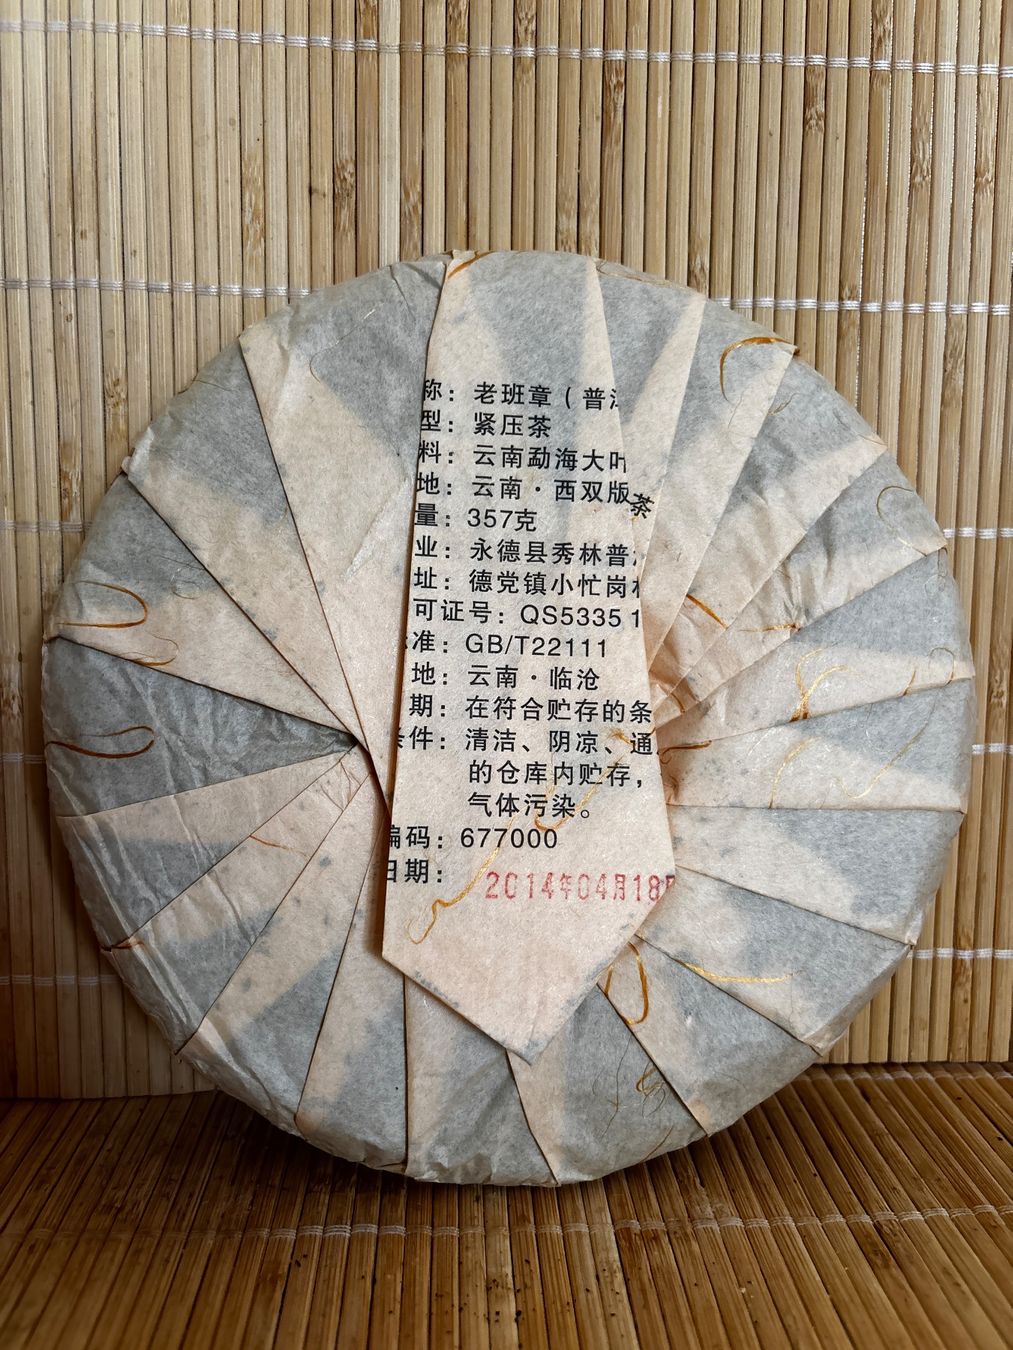 称：老班章（普
型：紧压茶
料：云南勐海大叶
地：云南·西双版
茶
量：357克
业：永德县秀林普
址：德党镇小忙岗
可证号：QS5335 1
准：GB/T22111
地：云南·临沧
期：在符合贮存的条
件：清洁、阴凉、通
的仓库内贮存，
气体污染。
编码：677000
日期：2014年04月18